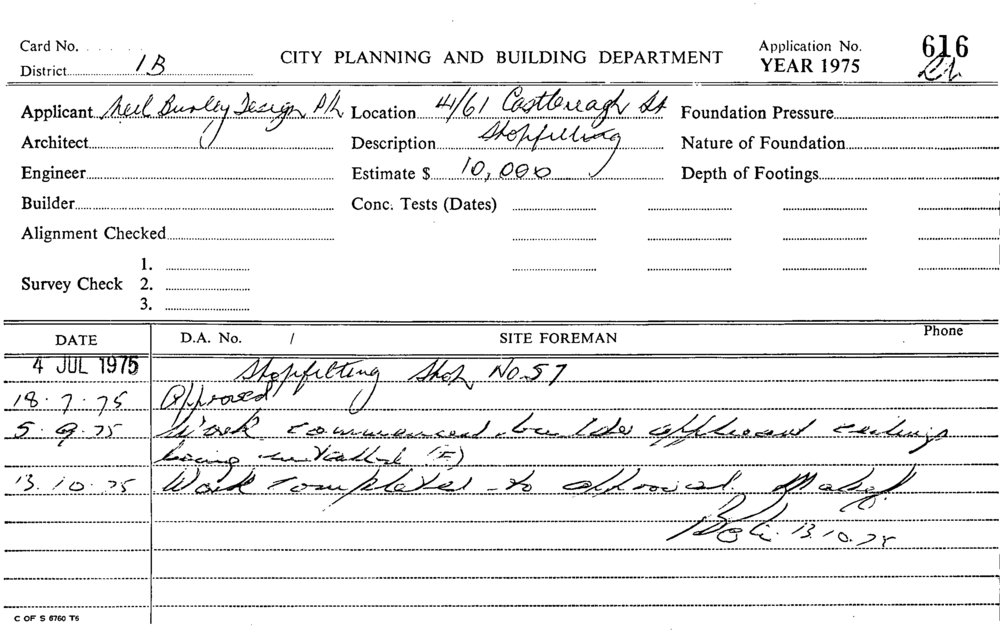 Card No.
CITY PLANNING AND BUILDING DEPARTMENT
Application No. 616
District 1B
YEAR 1975
Applicant Neil Burley Design P/L Location 41/61 Castlereagh St Foundation Pressure
Architect Description Shopfitting Nature of Foundation
Engineer Estimate $ 10,000 Depth of Footings
Builder Conc. Tests (Dates)
Alignment Checked
1.
Survey Check 2.
3.
DATE D.A. No. / SITE FOREMAN Phone
4 JUL 1975 Shopfitting Shop No. 57
18.7.75 Approved
5.9.75 Work commenced builder applicant ceilings
being installed
13.10.75 Work completed to approval.
13.10.75
C OF S 6760 T6